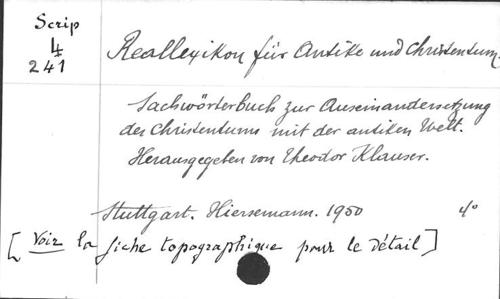 Scrip
4
241
Reallexikon für Antike und Christentum.
Sachwörterbuch zur Auseinandersetzung
des Christentums mit der antiken Welt.
Herausgegeben von Theodor Klauser.
Stuttgart. Hiersemann. 1950 4°
[Voir la fiche topographique pour le détail]